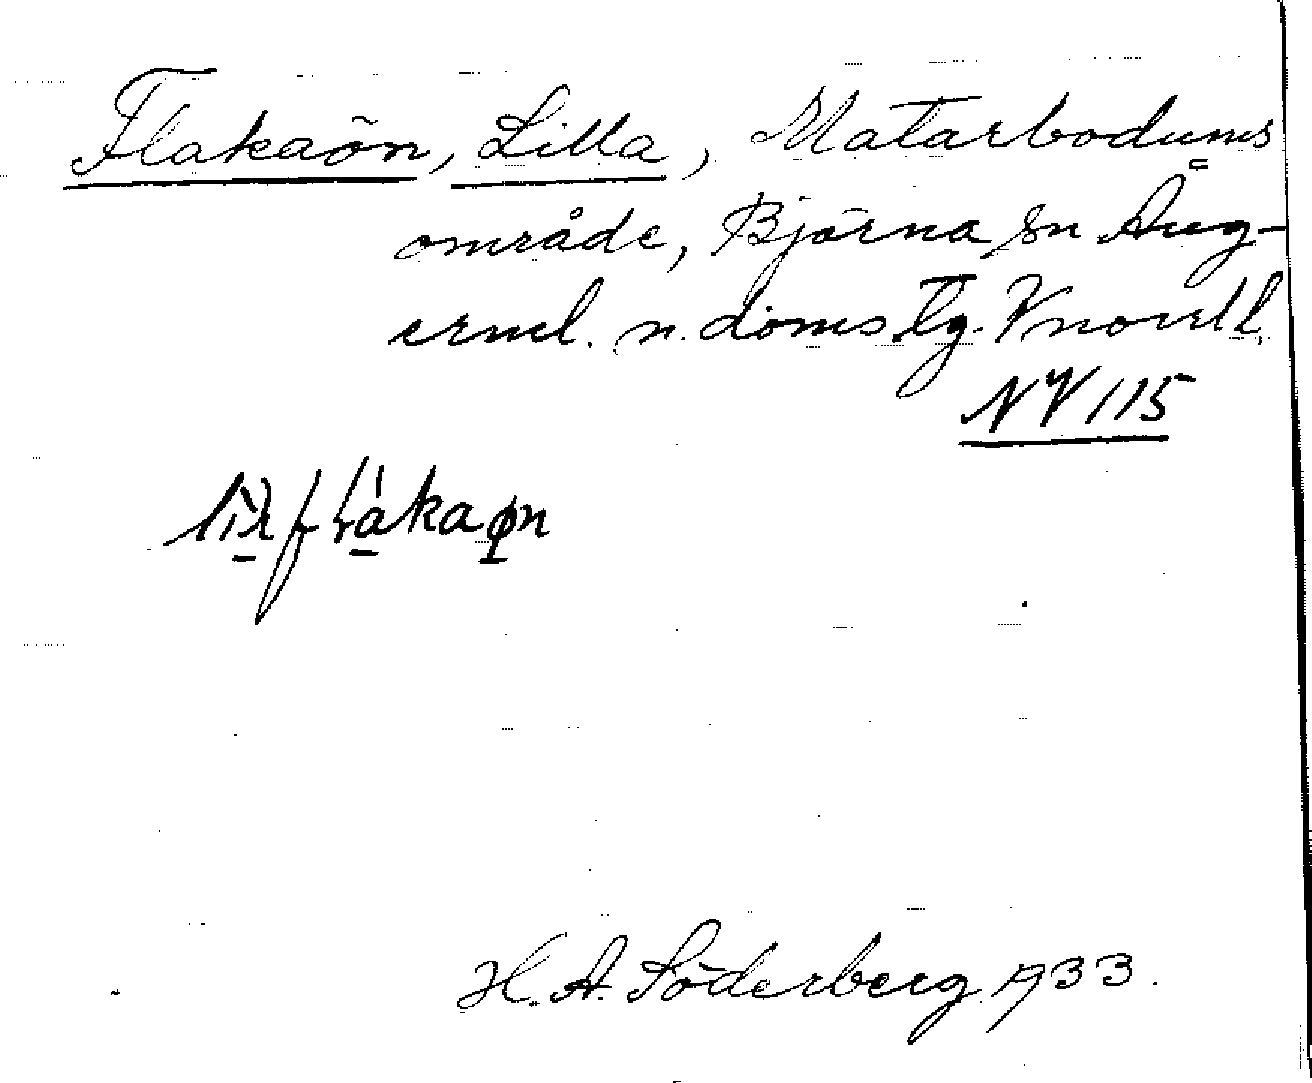 Flakaön, Lilla, Matarbodums
område, Björna sn Ång-
erml. n. doms. tg. Vnorrl.
NV 115
H. A. Söderberg 1933.